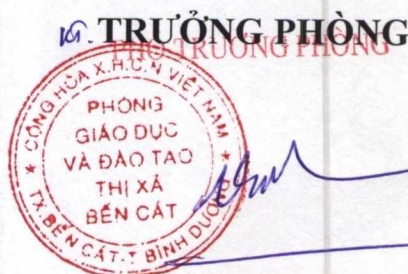 KT. TRƯỞNG PHÒNG
PHÓ TRƯỞNG PHÒNG
CỘNG HÒA X.H.C.N VIỆT NAM
PHÒNG
GIÁO DỤC
VÀ ĐÀO TẠO
THỊ XÃ
BẾN CÁT
TX. BẾN CÁT-T. BÌNH DƯƠNG